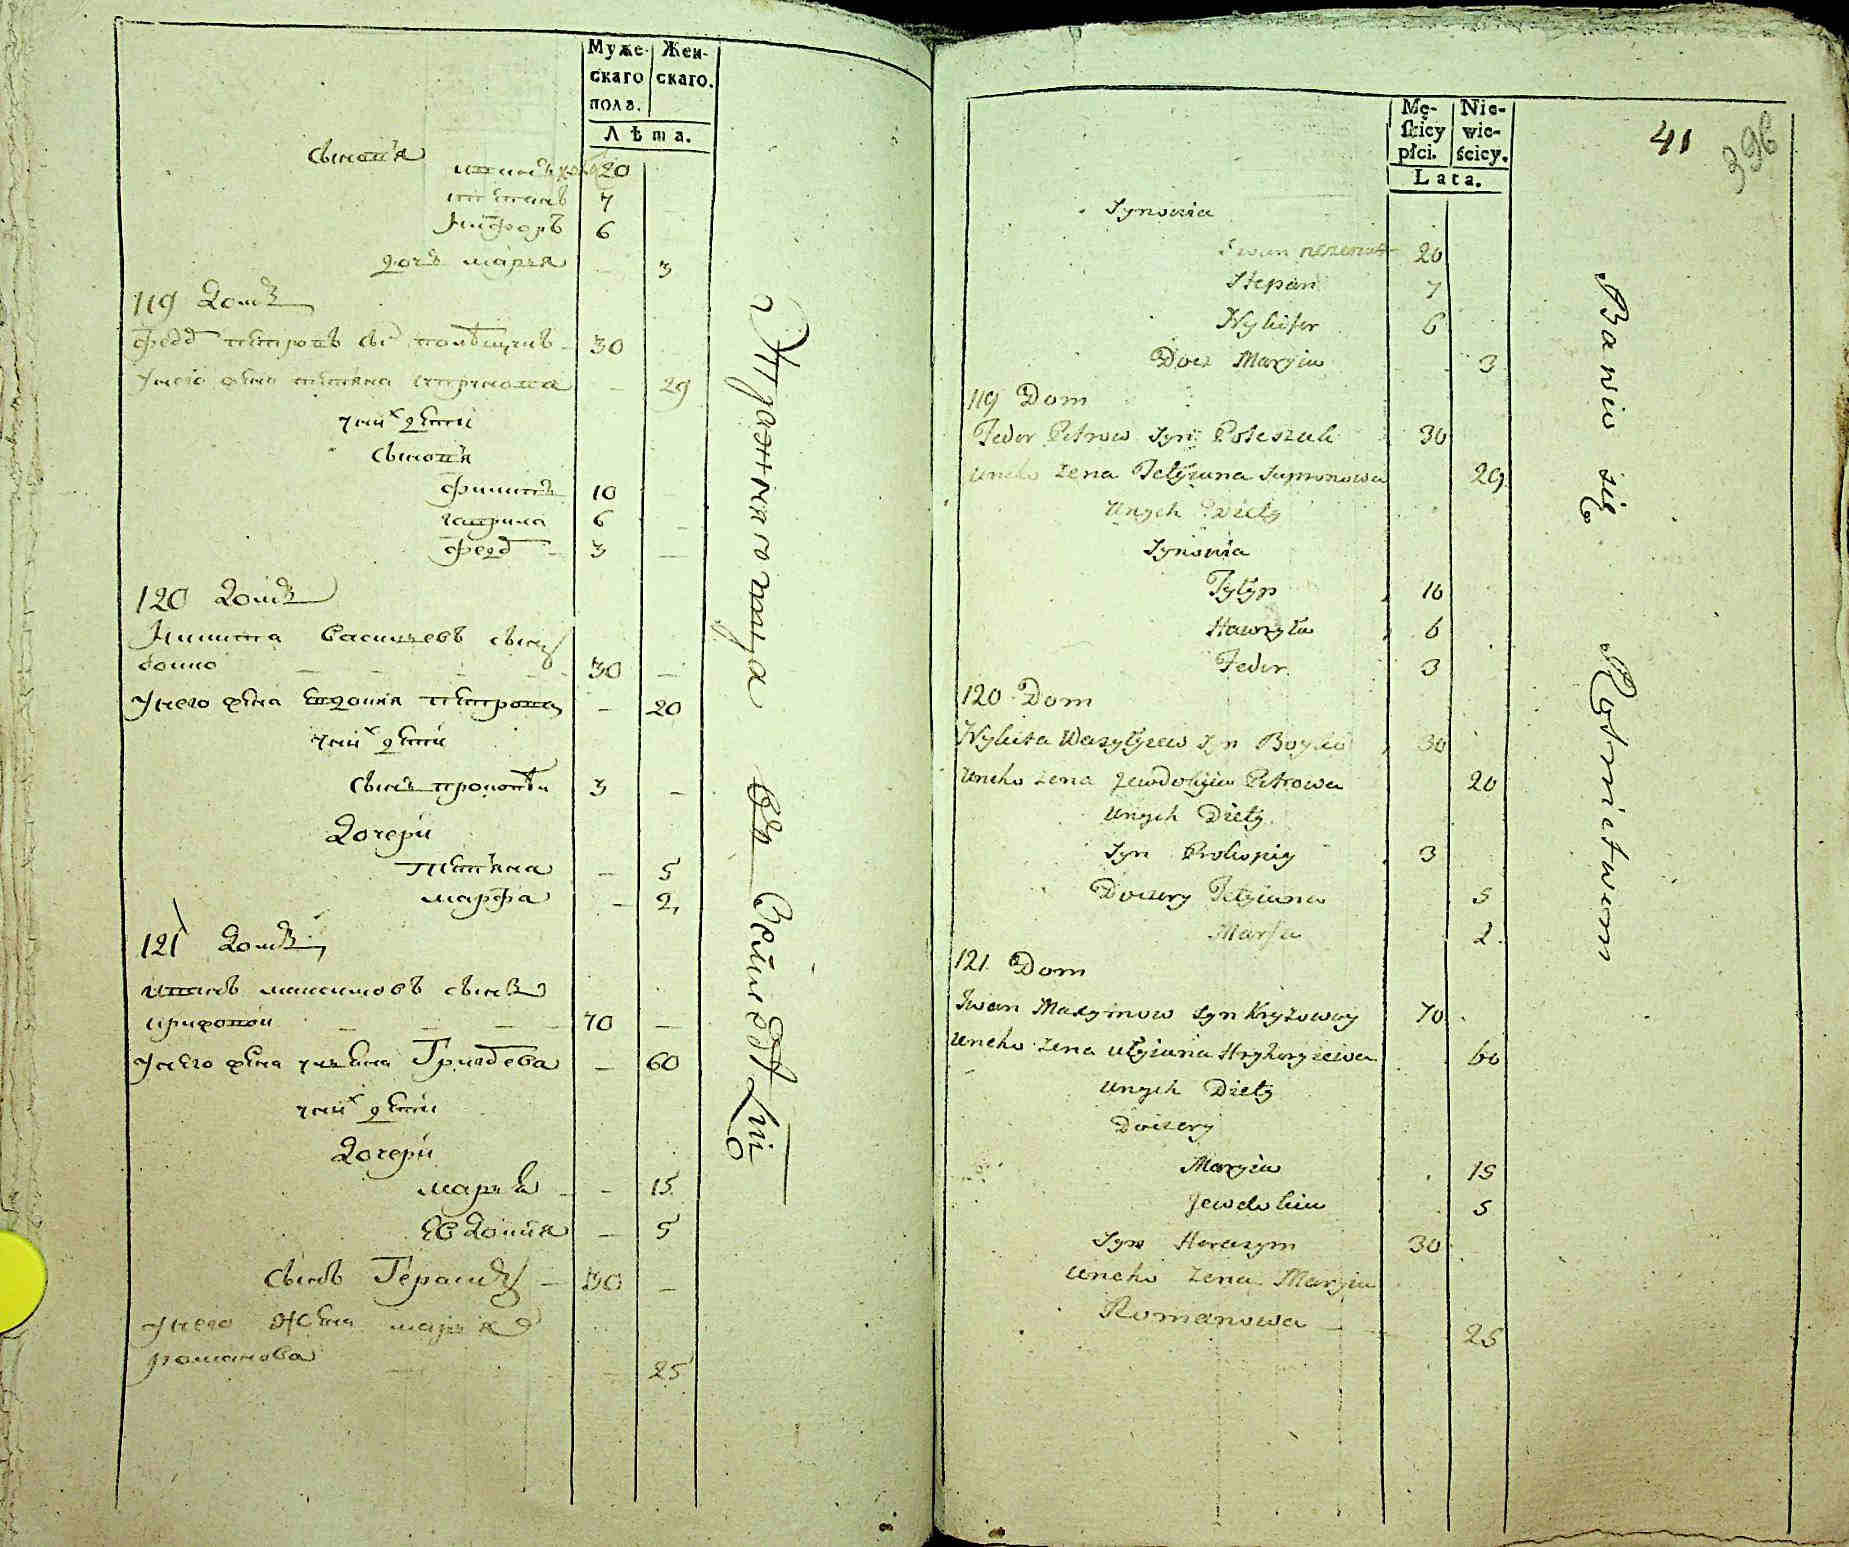 Муже-
скаго
полȣ.
Жен-
скаго.
Лѣта.
сыновя
иванъ 20
степанъ 7
никѣфоръ 6
дочь марья 3
119 Домъ
Федоръ петровъ сынъ полѣщукъ 30
у него жена тетяна 29
у нихъ дети
сыновя
филипъ 10
гаврила 6
федоръ 3
120 Домъ
Никита Васильевъ сынъ
бойко 30
у него жена евдокия петрова 20
у нихъ дети
сынъ прокопѣй 3
Дочери
Тетяна 5
марфа 2
121 Домъ
иванъ максимовъ сынъ
крижовой 70
у него жена ульяна Григорева 60
у нихъ дети
Дочери
марья 15
Евдокия 5
сынъ Герасимъ 30
у него жена марья
романова 25
Упражняютца въ Земледѣлии
Mę-
skiey
płci.
Nie-
wie-
ściey.
Lata.
41
396
Synowia
Iwan nezonat 20
Stepan 7
Nykifor 6
Docz Maryia 3
119 Dom
Fedor Petrow Syn Poleszuk 30
Uneho zena Tetyiana 29
Unych Diety
Synowia
Fyłyp 10
Hawryła 6
Fedor 3
120 Dom
Nykita Wasylyiew Syn Boyko 30
Uneho zena Jewdokyia Petrowa 20
Unych Diety
Syn Prokopiy 3
Doczery Tetyiana 5
Marfa 2
121 Dom
Iwan Maxymow Syn Kryżowoy 70
Uneho zena Ulyiana Hryhoryiewa 60
Unych Diety
Doczery
Maryia 15
Jewdokia 5
Syn Herasym 30
Uneho zena Maryia
Romanowa 25
Bawio się Rolnictwem